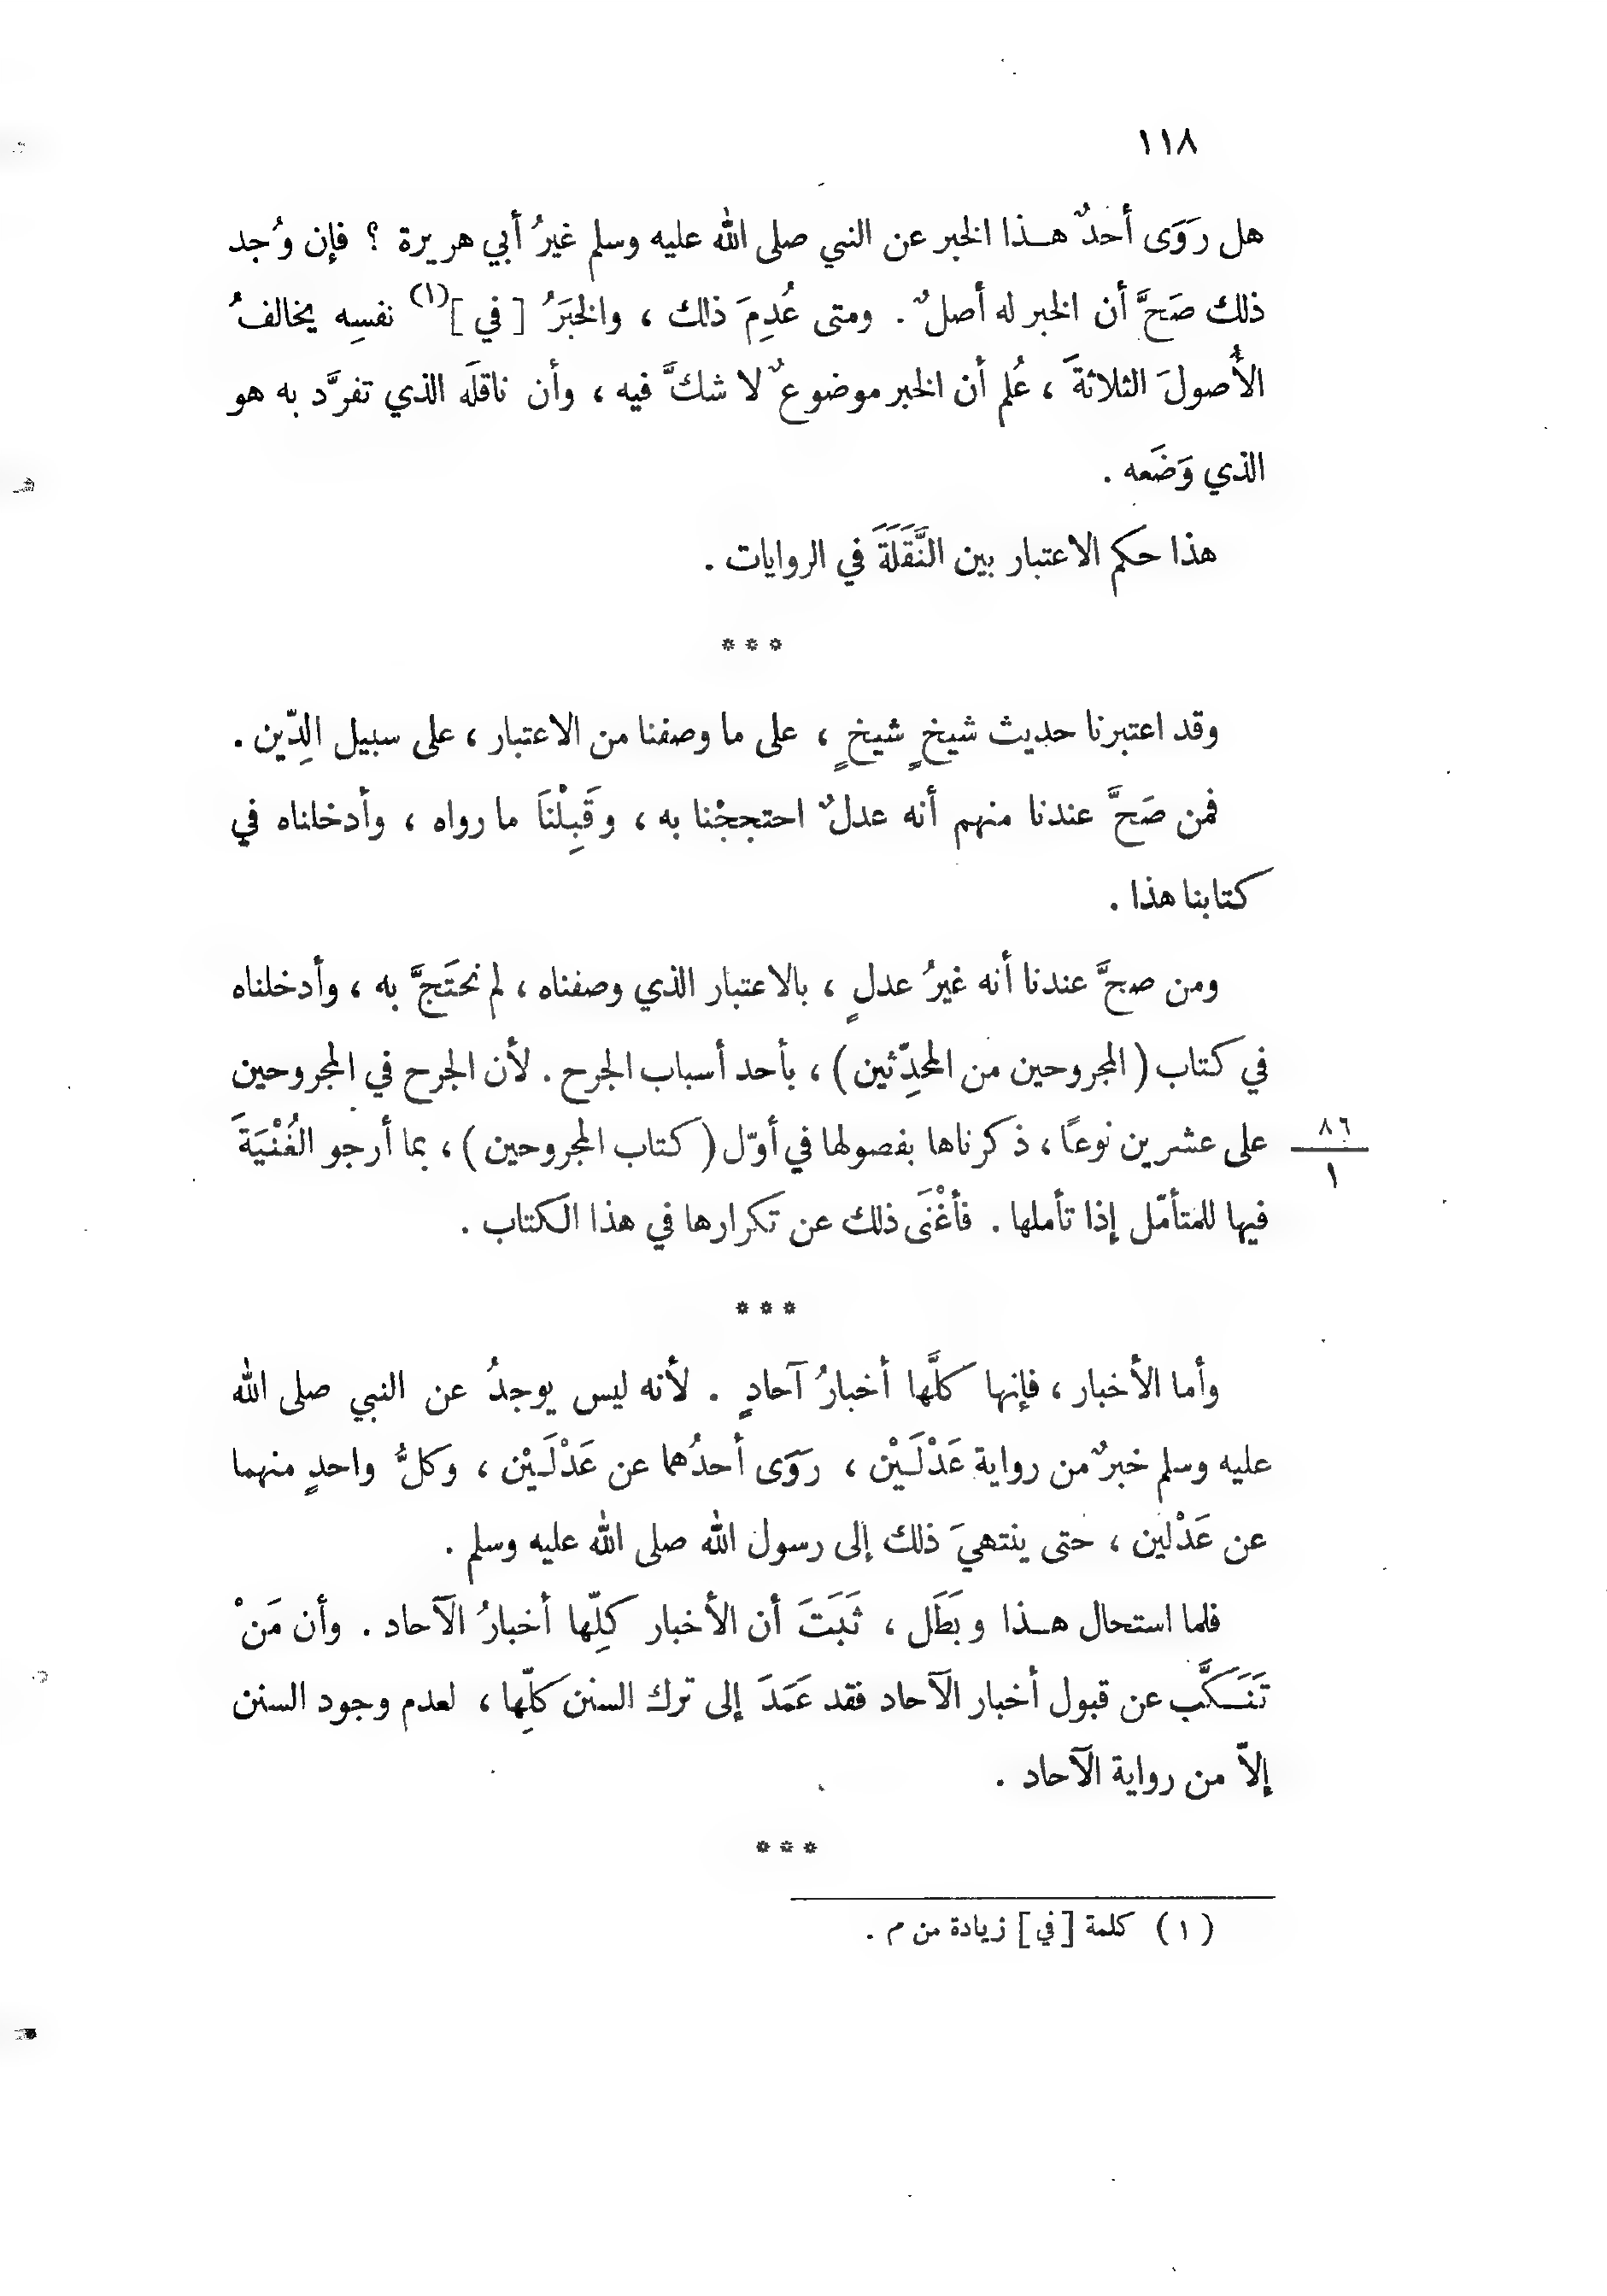 ١١٨
هل رَوَى أحدٌ هـذا الخبر عن النبي صلى الله عليه وسلم غيرُ أبي هريرة ؟ فإن وُجد
ذلك صَحَّ أن الخبر له أصلٌ . ومتى عُدِمَ ذلك ، والخبَرُ [ في ](١) نفسِه يخالفُ
الأُصولَ الثلاثةَ ، عُلم أن الخبر موضوعٌ لا شكَّ فيه ، وأن ناقلَه الذي تفرَّد به هو
الذي وَضَعه .
هذا حكم الاعتبار بين النَّقَلَةَ في الروايات .
***
وقد اعتبرنا حديث شيخٍ شيخٍ ، على ما وصفنا من الاعتبار ، على سبيل الدِّين .
فمن صَحَّ عندنا منهم أنه عدلٌ احتججْنا به ، وقَبِلْنَا ما رواه ، وأدخلناه في
كتابنا هذا .
ومن صحَّ عندنا أنه غيرُ عدلٍ ، بالاعتبار الذي وصفناه ، لم نحتَجَّ به ، وأدخلناه
في كتاب ( المجروحين من المحدِّثين ) ، بأحد أسباب الجرح . لأن الجرح في المجروحين
على عشرين نوعًا ، ذكرناها بفصولها في أوّل ( كتاب المجروحين ) ، بما أرجو الغُنْيَةَ
٨٦
١
فيها للمتأمّل إذا تأملها . فأغْنَى ذلك عن تكرارها في هذا الكتاب .
***
وأما الأخبار ، فإنها كلَّها أخبارُ آحادٍ . لأنه ليس يوجدُ عن النبي صلى الله
عليه وسلم خبرٌ من رواية عَدْلَـيْن ، رَوَى أحدُهما عن عَدْلَـيْن ، وكلُّ واحدٍ منهما
عن عَدْلين ، حتى ينتهيَ ذلك إلى رسول الله صلى الله عليه وسلم .
فلما استحال هـذا وبَطَل ، ثَبَتَ أن الأخبار كلِّها أخبارُ الآحاد . وأن مَنْ
تَنَـكَّب عن قبول أخبار الآحاد فقد عَمَدَ إلى ترك السنن كلِّها ، لعدم وجود السنن
إلاّ من رواية الآحاد .
***
( ١ ) كلمة [ في ] زيادة من م .